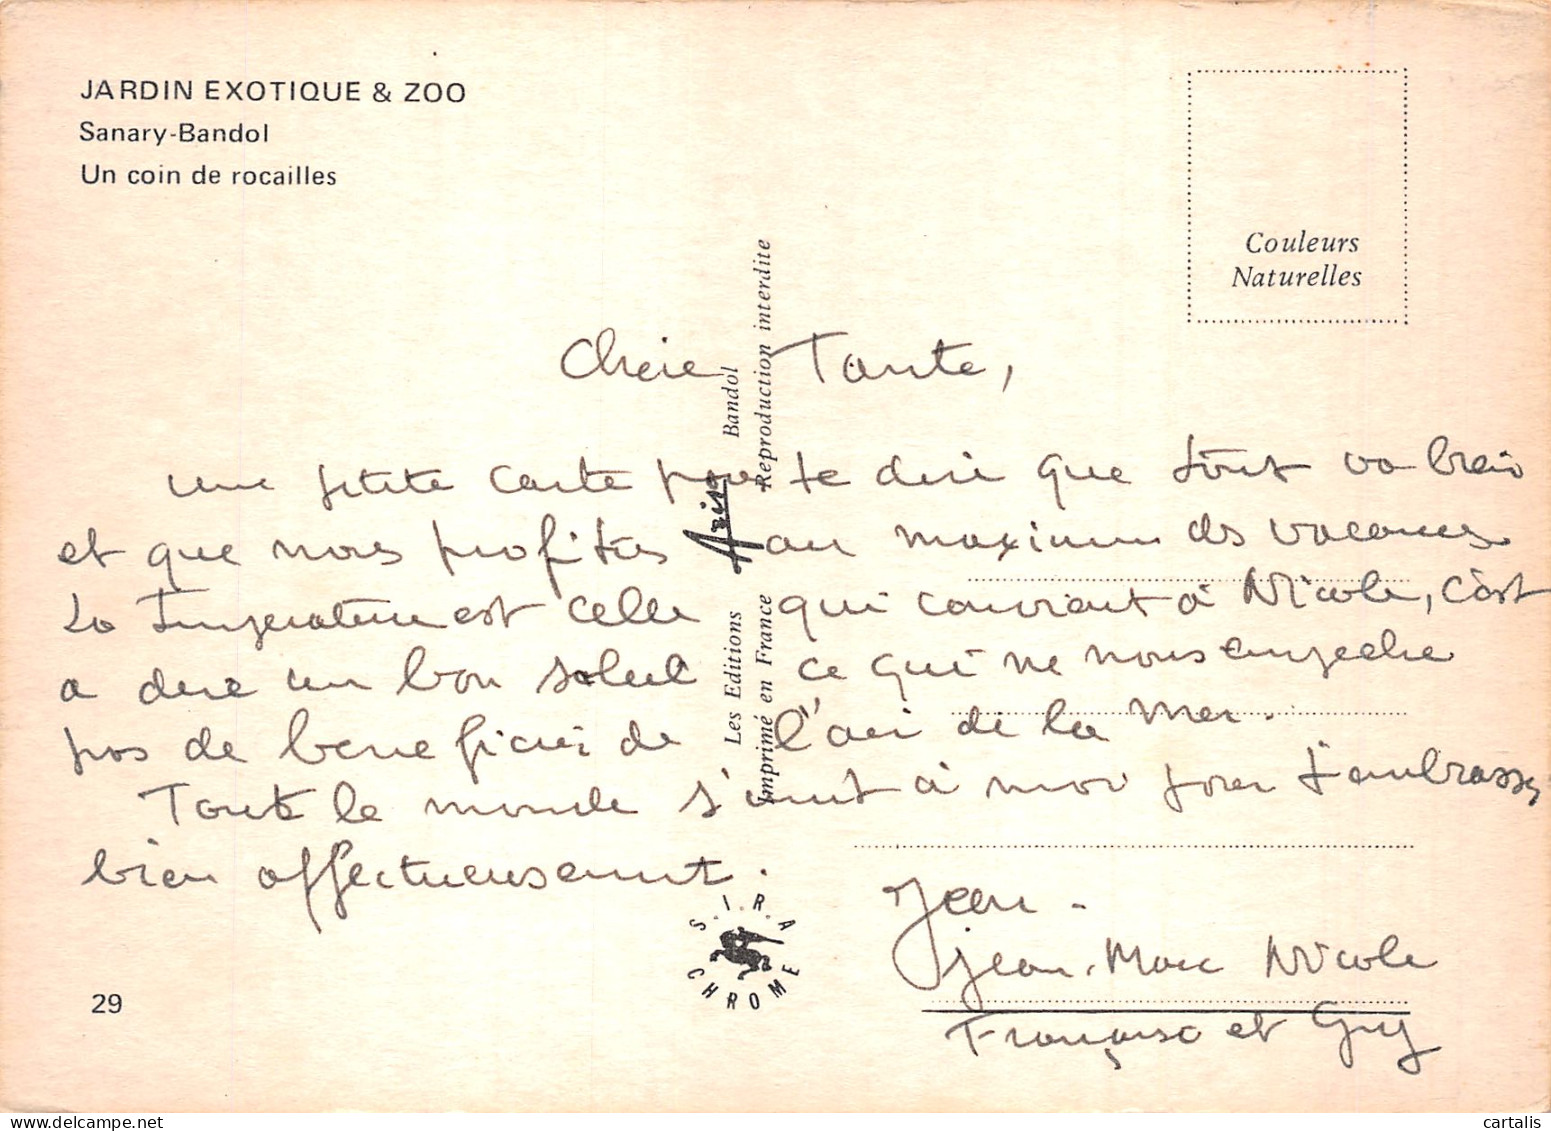 JARDIN EXOTIQUE & ZOO
Sanary-Bandol
Un coin de rocailles
Couleurs
Naturelles
Chère Tante,
une petite carte pour te dire que tout va bien
et que nous profitons au maximum des vacances
La Température est celle qui convient à Nicole, c'est
à dire un bon soleil ce qui ne nous empêche
pas de bénéficier de l'air de la mer.
Toute le monde s'unit à moi pour t'embrasser
bien affectueusement.
Jean -
Jean-Marc Nicole
Françoise et Guy
Les Editions Aris Bandol
Imprimé en France Reproduction interdite
S.I.R.A
CHROME
29
cartalis